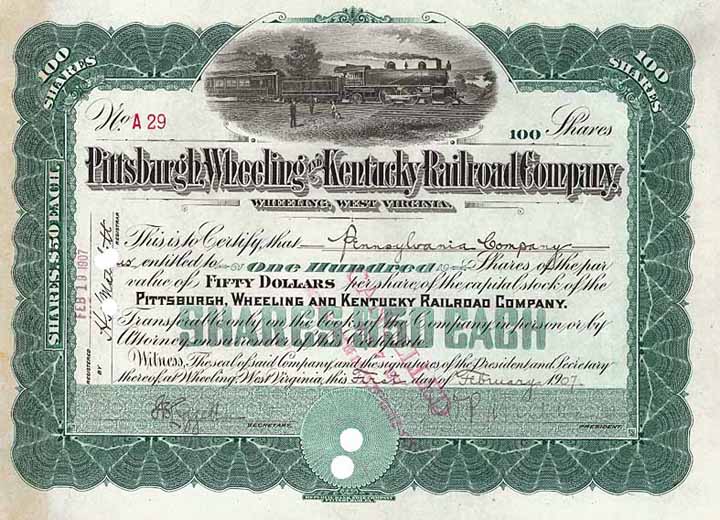 100 SHARES
100 SHARES
No A 29
100 Shares
Pittsburgh, Wheeling AND Kentucky Railroad Company,
WHEELING, WEST VIRGINIA.
This is to Certify, that Pennsylvania Company
is entitled to One Hundred Shares of the par
value of FIFTY DOLLARS per share, of the capital stock of the
PITTSBURGH, WHEELING AND KENTUCKY RAILROAD COMPANY.
Transferable only on the books of the Company in person or by
Attorney on surrender of this certificate.
SHARES $50 EACH
Witness, The seal of said Company and the signatures of the President and Secretary
thereof, at Wheeling, West Virginia, this First day of February, 1907.
SECRETARY.
PRESIDENT.
SHARES $50 EACH
REGISTERED
FEB 19 1907
BY
REGISTRAR
CANCELLED